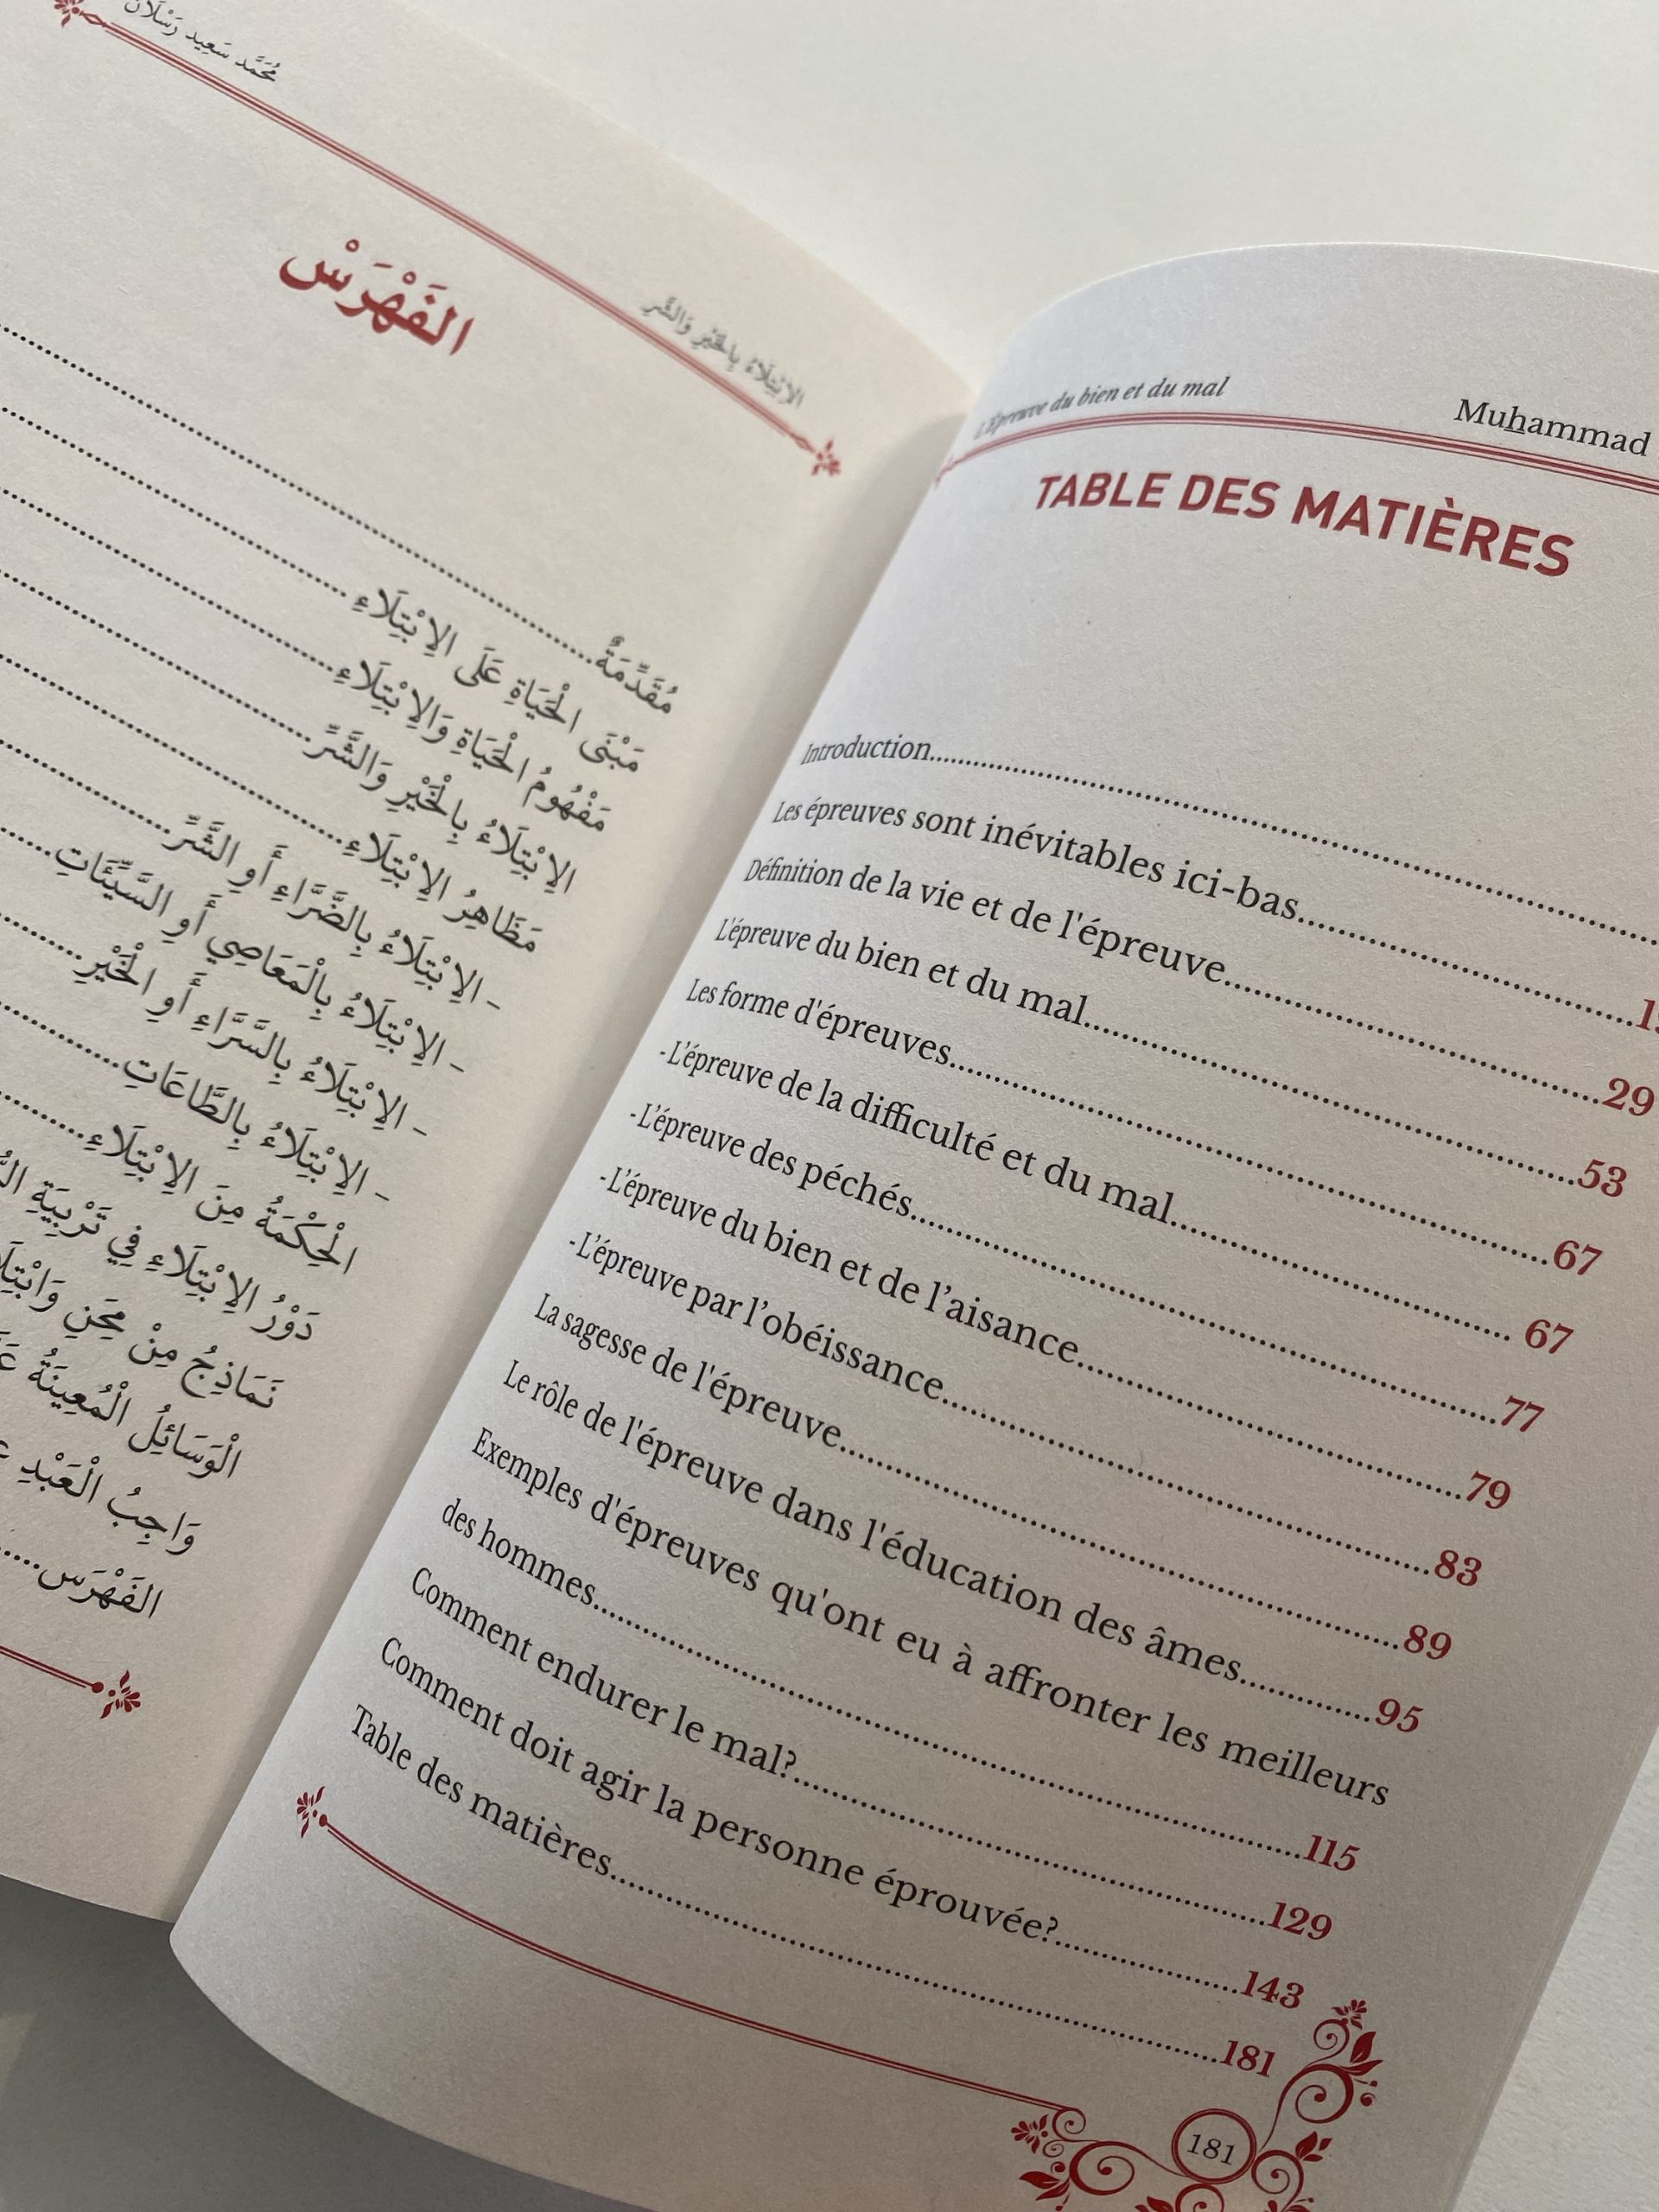 مُحَمَّد سَعِيد رَسْلَان
الِابْتِلَاءُ بِالْخَيْرِ وَالشَّرِّ
الفَهْرَسْ
مُقَدِّمَةٌ........
مَبْنَى الْحَيَاةِ عَلَى الِابْتِلَاءِ........
مَفْهُومُ الْحَيَاةِ وَالِابْتِلَاءِ........
الِابْتِلَاءُ بِالْخَيْرِ وَالشَّرِّ........
مَظَاهِرُ الِابْتِلَاءِ........
- الِابْتِلَاءُ بِالضَّرَّاءِ أَوِ الشَّرِّ........
- الِابْتِلَاءُ بِالْمَعَاصِي أَوِ السَّيِّئَاتِ........
- الِابْتِلَاءُ بِالسَّرَّاءِ أَوِ الْخَيْرِ........
- الِابْتِلَاءُ بِالطَّاعَاتِ........
الْحِكْمَةُ مِنَ الِابْتِلَاءِ........
دَوْرُ الِابْتِلَاءِ فِي تَرْبِيَةِ
نَمَاذِجُ مِنْ مِحَنِ
الْوَسَائِلُ الْمُعِينَةُ
وَاجِبُ الْعَبْدِ
الفَهْرَس........
L'Épreuve du bien et du mal
Muhammad
TABLE DES MATIÈRES
Introduction........
Les épreuves sont inévitables ici-bas........
Définition de la vie et de l'épreuve........29
L'épreuve du bien et du mal........53
Les forme d'épreuves........67
- L'épreuve de la difficulté et du mal........67
- L'épreuve des péchés........77
- L'épreuve du bien et de l'aisance........79
- L'épreuve par l'obéissance........83
La sagesse de l'épreuve........89
Le rôle de l'épreuve dans l'éducation des âmes........95
Exemples d'épreuves qu'ont eu à affronter les meilleurs
des hommes........115
Comment endurer le mal?........129
Comment doit agir la personne éprouvée?........143
Table des matières........181
181